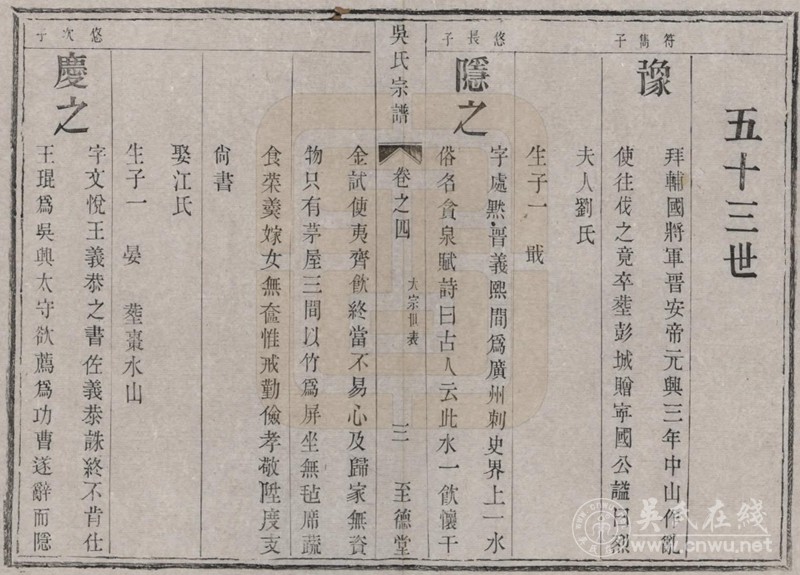 五十三世
符雋子
豫
拜輔國將軍晉安帝元興三年中山作亂
使往伐之竟卒塟彭城贈寜國公謚曰烈
夫人劉氏
生子一 戢
悠長子
隱之
字處黙晉義熙間爲廣州刺史界上一水
俗名貪泉賦詩曰古人云此水一飲懷千
吳氏宗譜
卷之四
大宗世表
三
至德堂
金試使夷齊飲終當不易心及歸家無資
物只有茅屋三間以竹爲屏坐無毡席蔬
食菜羮嫁女無奩惟戒勤儉孝敬陞度支
尙書
娶江氏
生子一 晏 塟棗水山
悠次子
慶之
字文悅王義恭之書佐義恭誅終不肯仕
王琨爲吳興太守欲薦爲功曹遂辭而隱
吴氏在线
www.cnwu.net